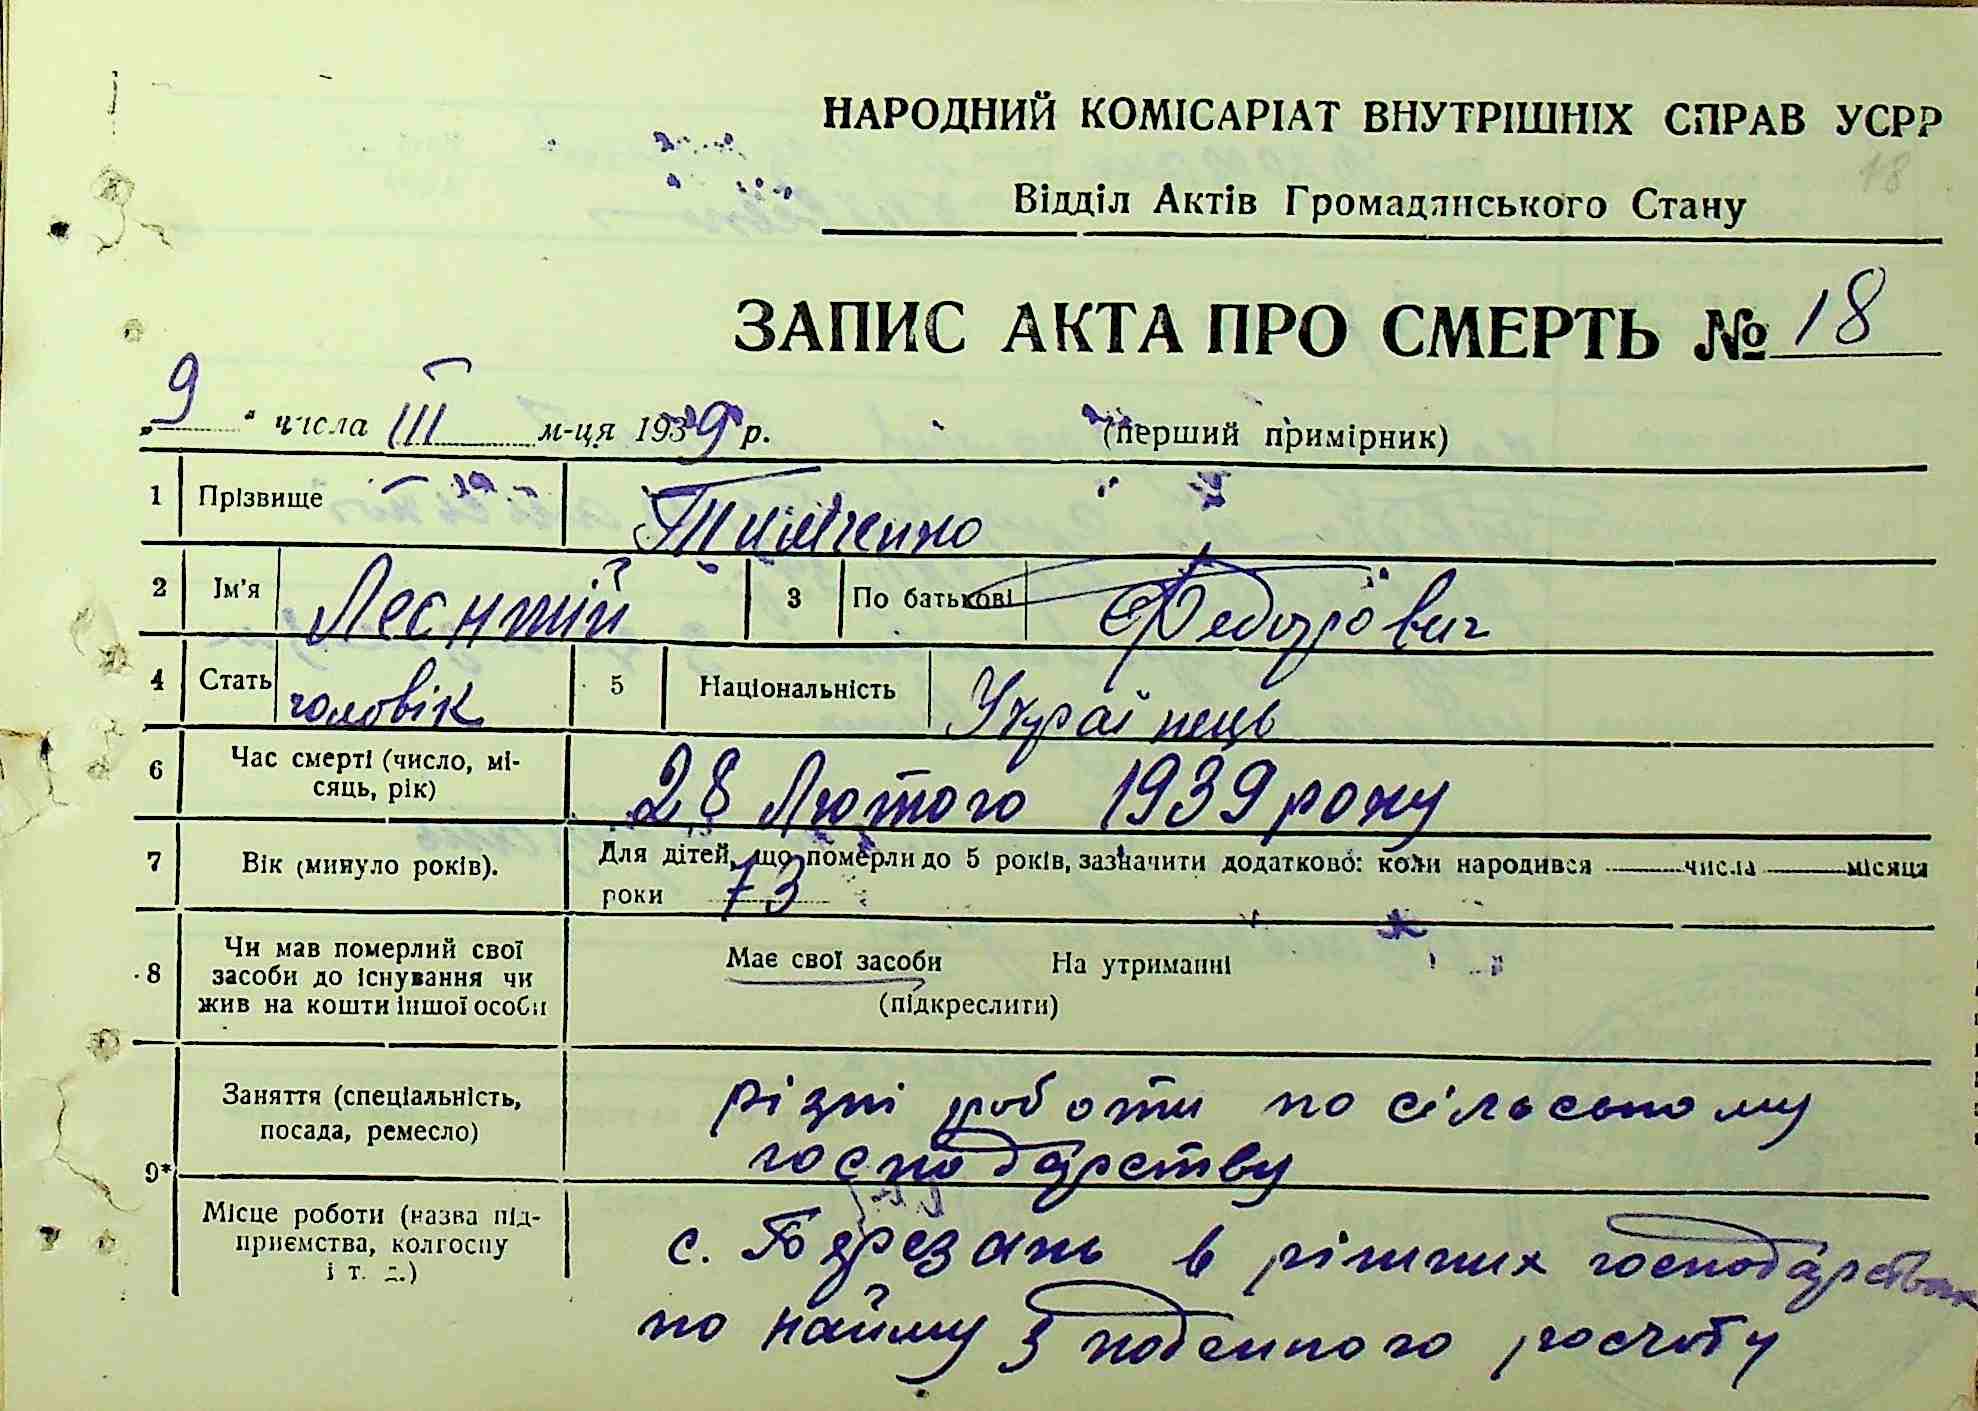 НАРОДНИЙ КОМІСАРІАТ ВНУТРІШНІХ СПРАВ УСРР
18
Відділ Актів Громадянського Стану
ЗАПИС АКТА ПРО СМЕРТЬ № 18
„9“ числа III м-ця 1939 р. (перший примірник)
1 Прізвище Тимченко
2 Ім'я 3 По батькові Федорович
4 Стать чоловік 5 Національність Українець
6 Час смерті (число, мі-
сяць, рік) 28 Лютого 1939 року
7 Вік (минуло років). Для дітей, що померли до 5 років, зазначити додатково: коли народився числа місяця
роки 73
8 Чи мав померлий свої
засоби до існування чи
жив на кошти іншої особи
Має свої засоби На утриманні
(підкреслити)
9* Заняття (спеціальність,
посада, ремесло)
різні роботи по сільському
господарству
Місце роботи (назва під-
приємства, колгоспу
і т. д.)
с. Березань в ріжних господарствах
по найму з поденного росчоту